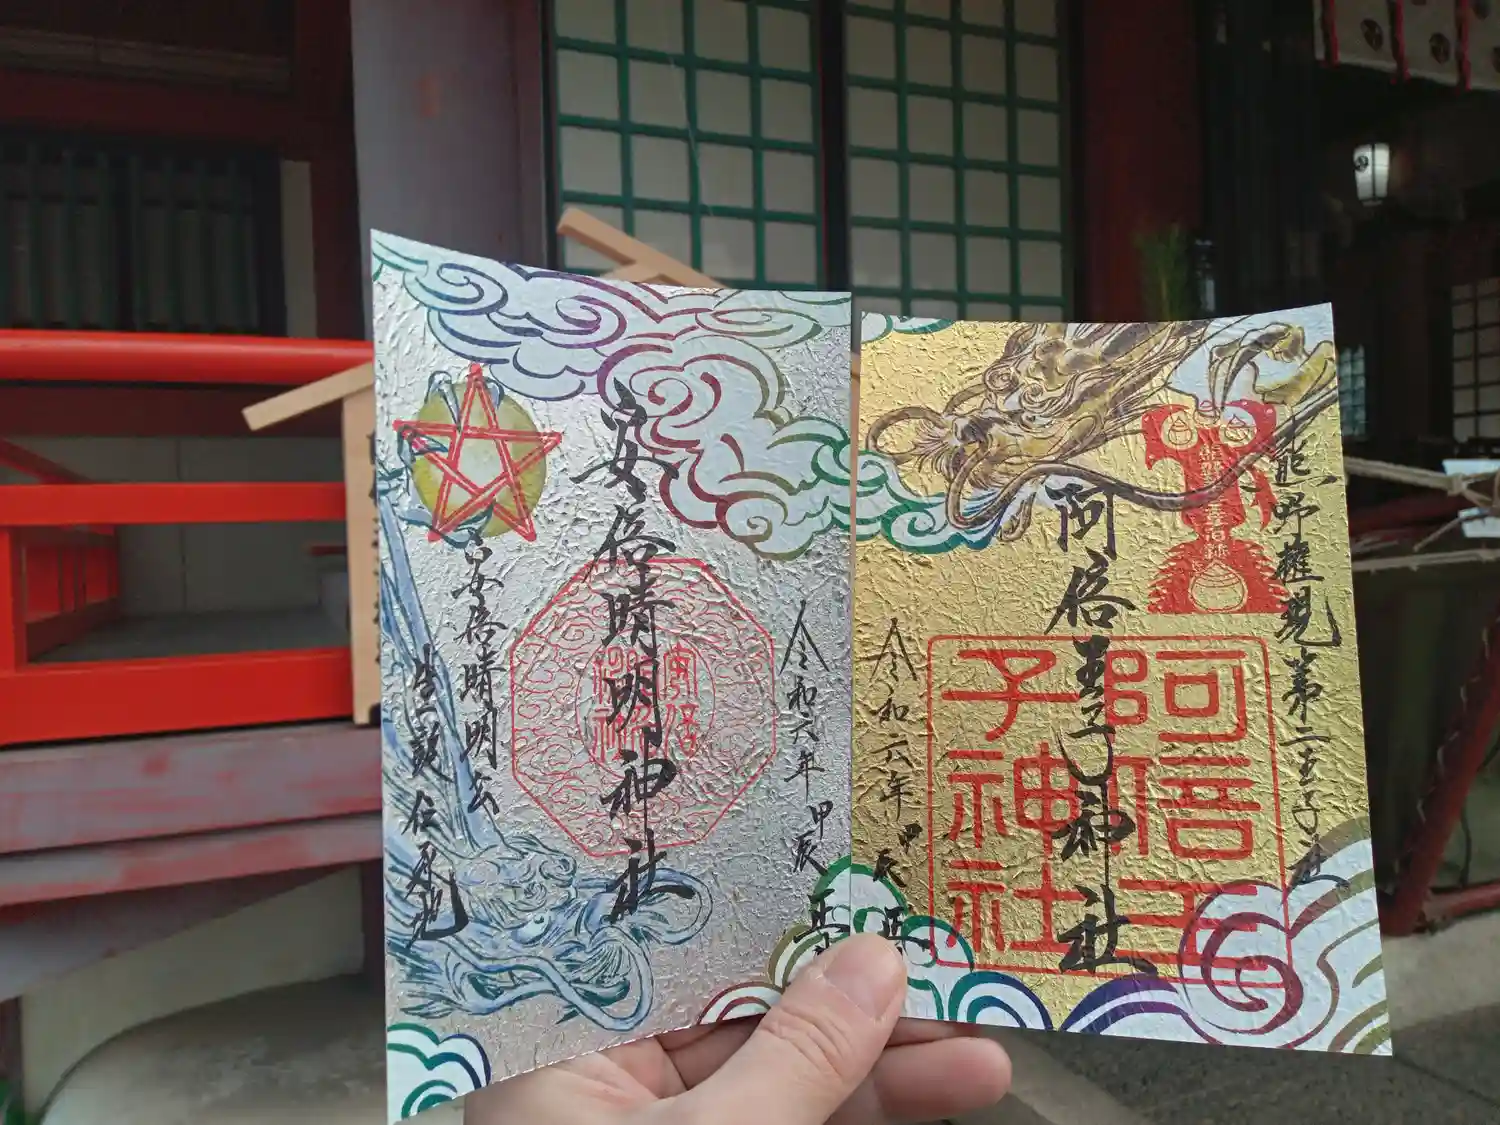 熊野権現第二王子
阿倍王子神社
阿倍王
子神社
令和六年甲辰
安倍晴明神社
安倍晴明公
生誕伝承地
令和六年甲辰